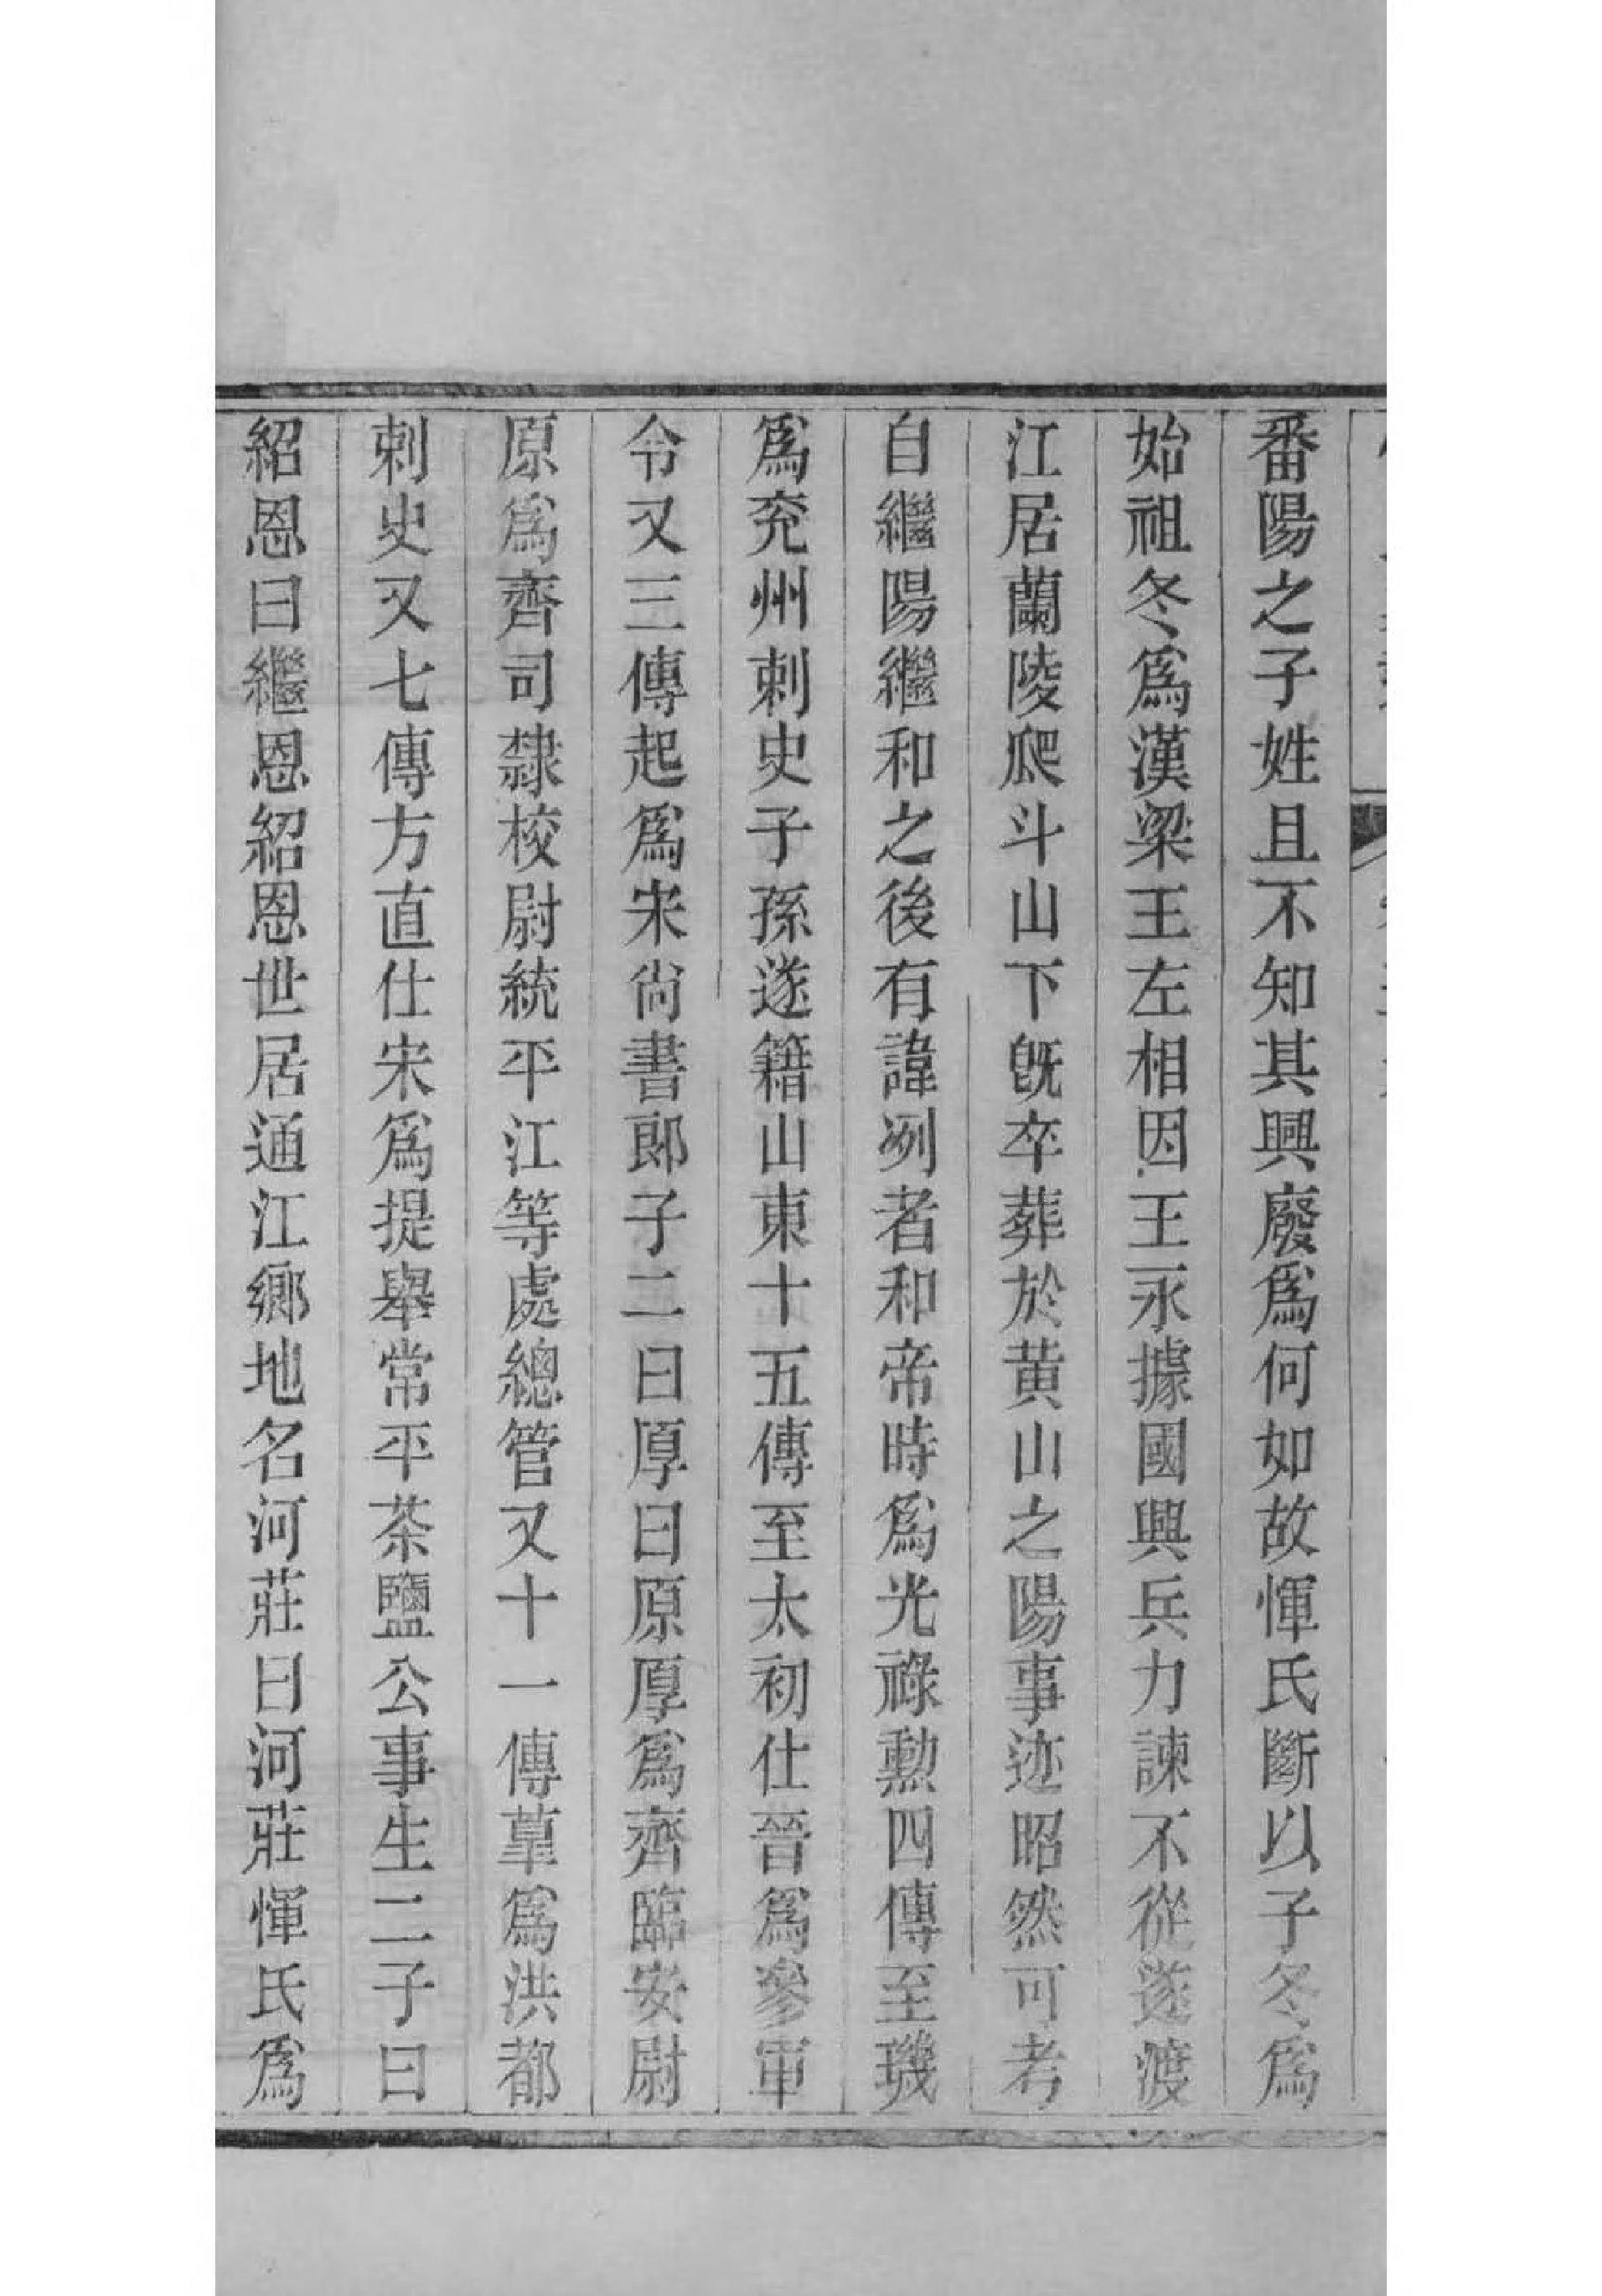 番陽之子姓且不知其興廢爲何如故惲氏斷以子冬爲
始祖冬爲漢梁王左相因王永據國興兵力諫不從遂渡
江居蘭陵爬斗山下旣卒葬於黄山之陽事迹昭然可考
自繼陽繼和之後有諱冽者和帝時爲光祿勲四傳至璣
爲兖州刺史子孫遂籍山東十五傳至太初仕晉爲參軍
令又三傳起爲宋尙書郞子二曰厚曰原厚爲齊臨安尉
原爲齊司隸校尉統平江等處總管又十一傳葟爲洪都
刺史又七傳方直仕宋爲提舉常平茶鹽公事生二子曰
紹恩曰繼恩紹恩世居通江鄉地名河莊曰河莊惲氏爲